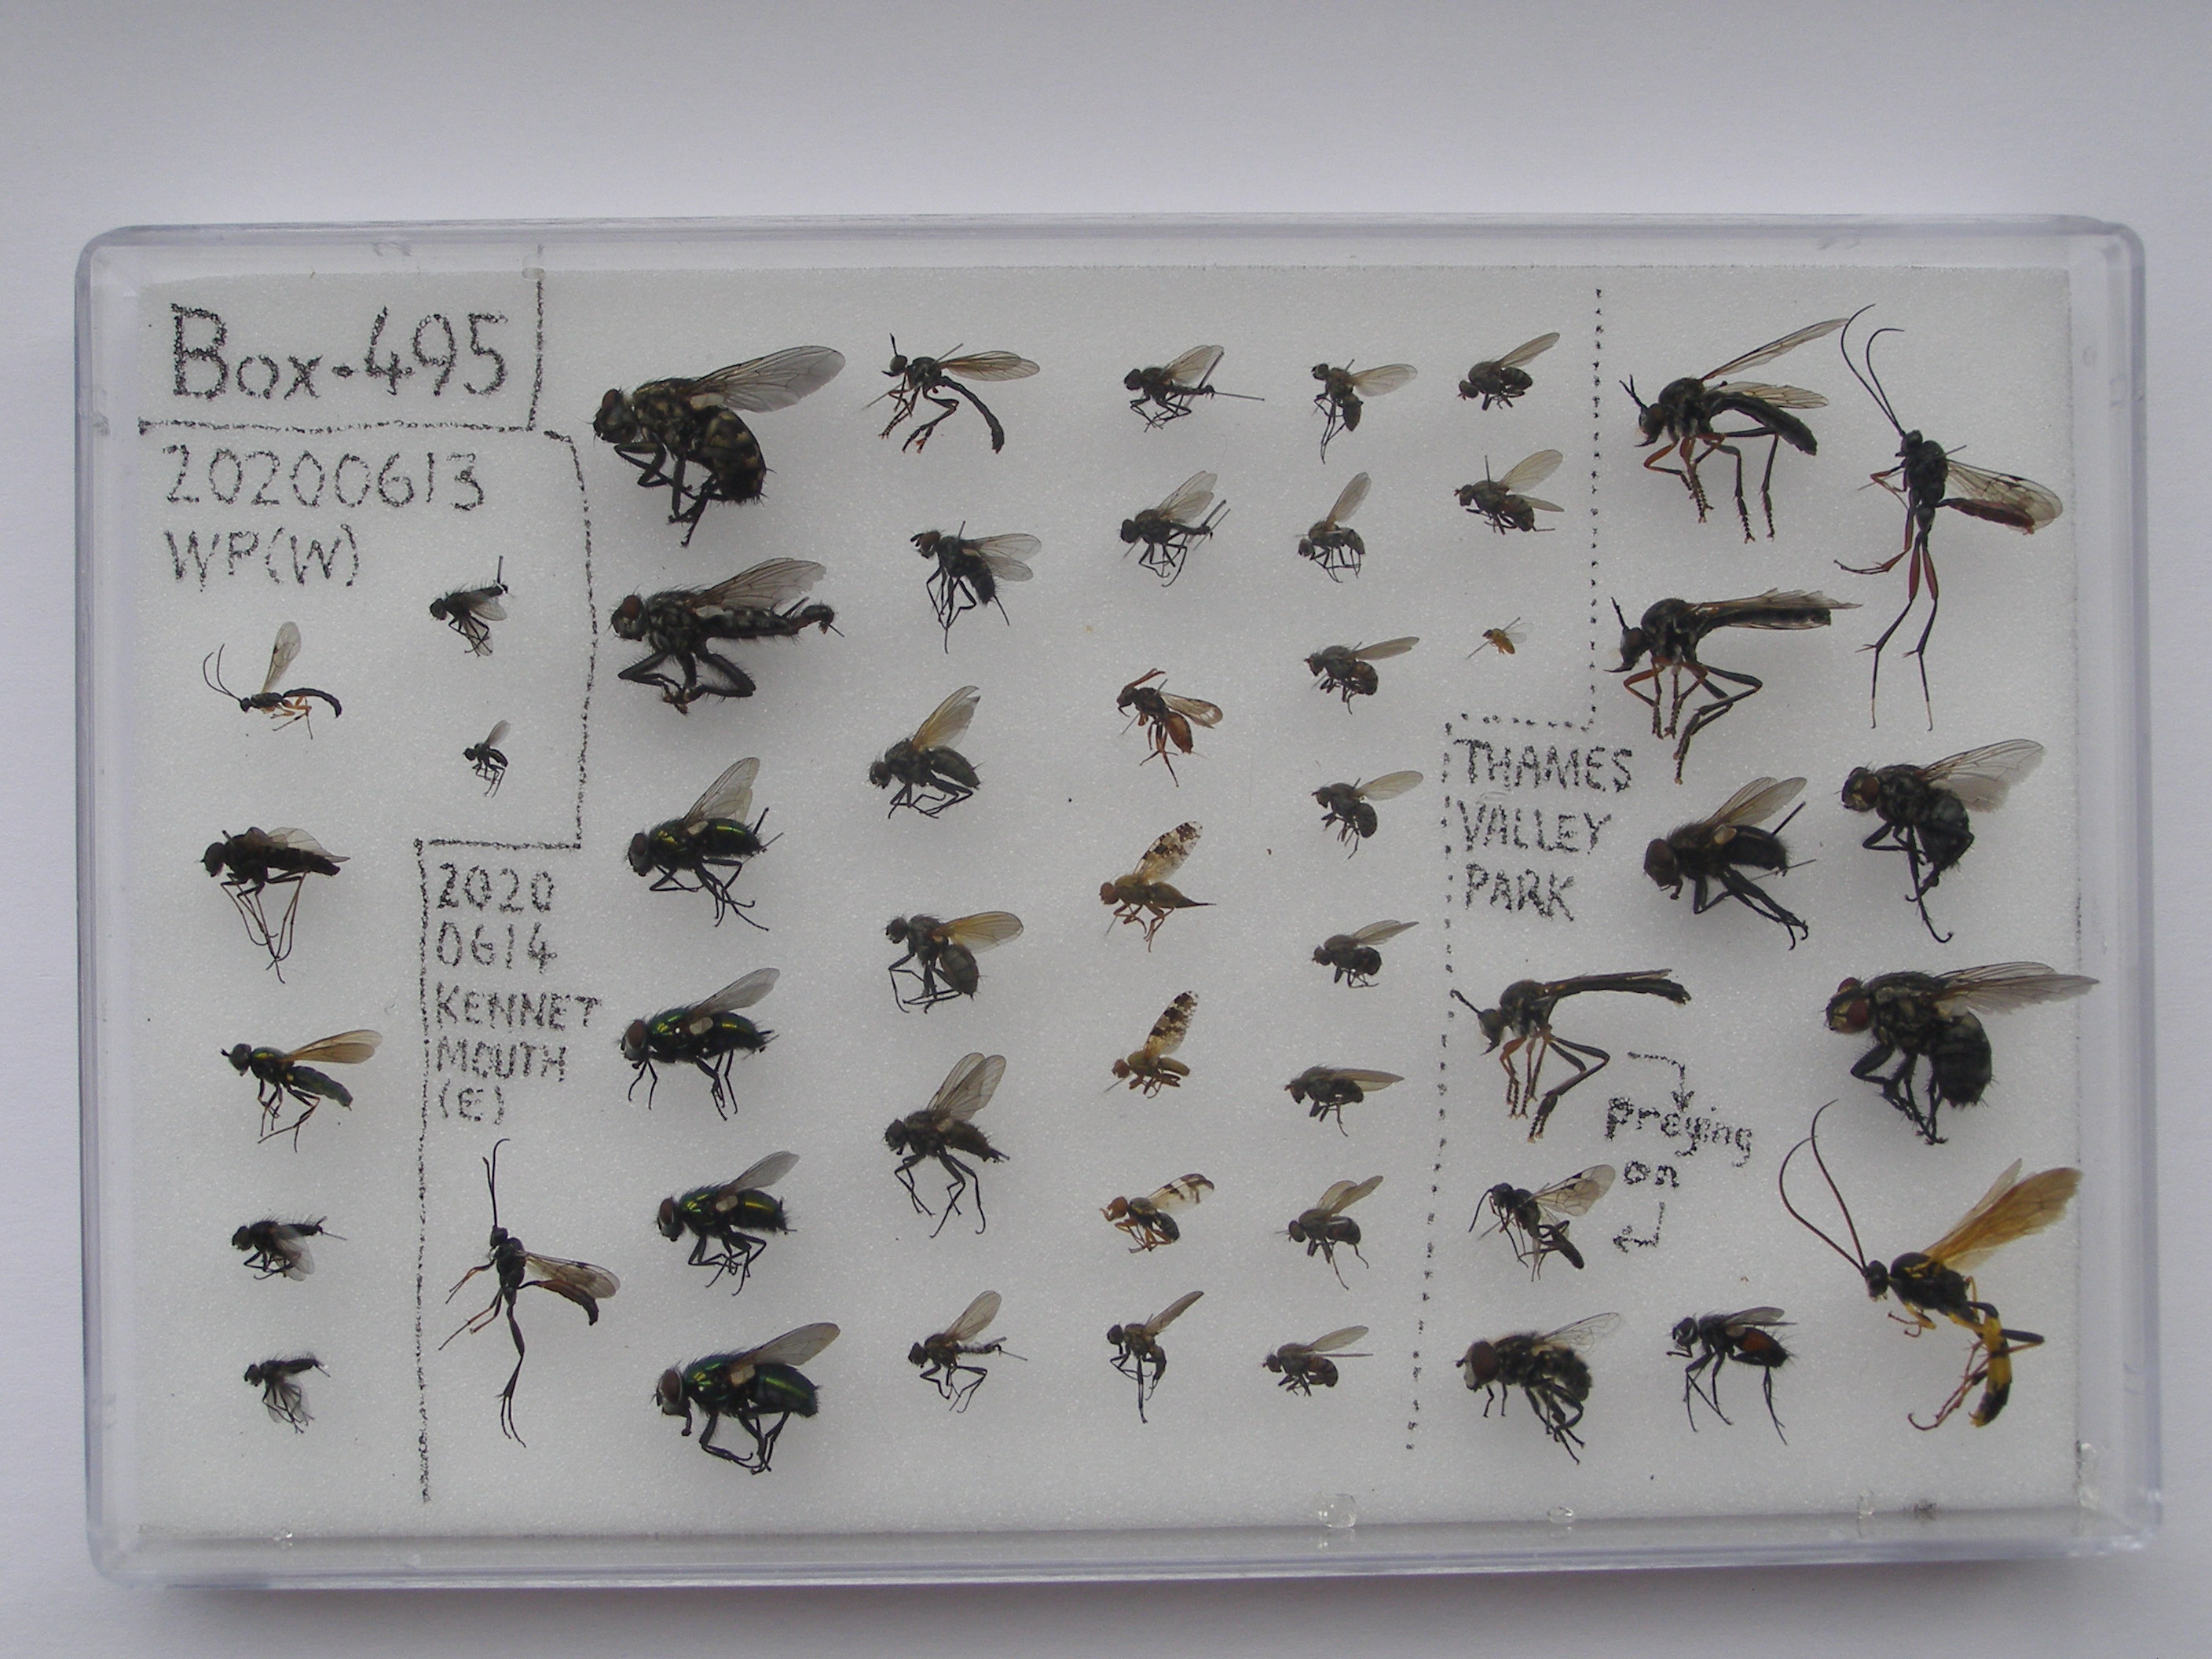 Box-495
20200613
WP(W)
2020
0614
KENNET
MOUTH
(E)
THAMES
VALLEY
PARK
preying
on